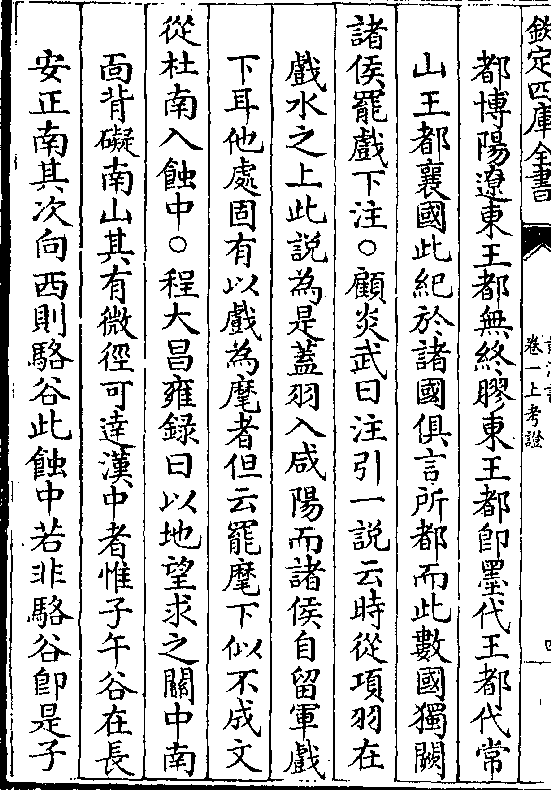 欽定四庫全書
卷一上考證
都博陽遼東王都無終膠東王都卽墨代王都代常
山王都襄國此紀於諸國俱言所都而此數國獨闕
諸侯罷戲下注○顧炎武曰注引一說云時從項羽在
戲水之上此說為是蓋羽入咸陽而諸侯自留軍戲
下耳他處固有以戲為麾者但云罷麾下似不成文
從杜南入蝕中○程大昌雍録曰以地望求之關中南
面背礙南山其有微徑可達漢中者惟子午谷在長
安正南其次向西則駱谷此蝕中若非駱谷卽是子